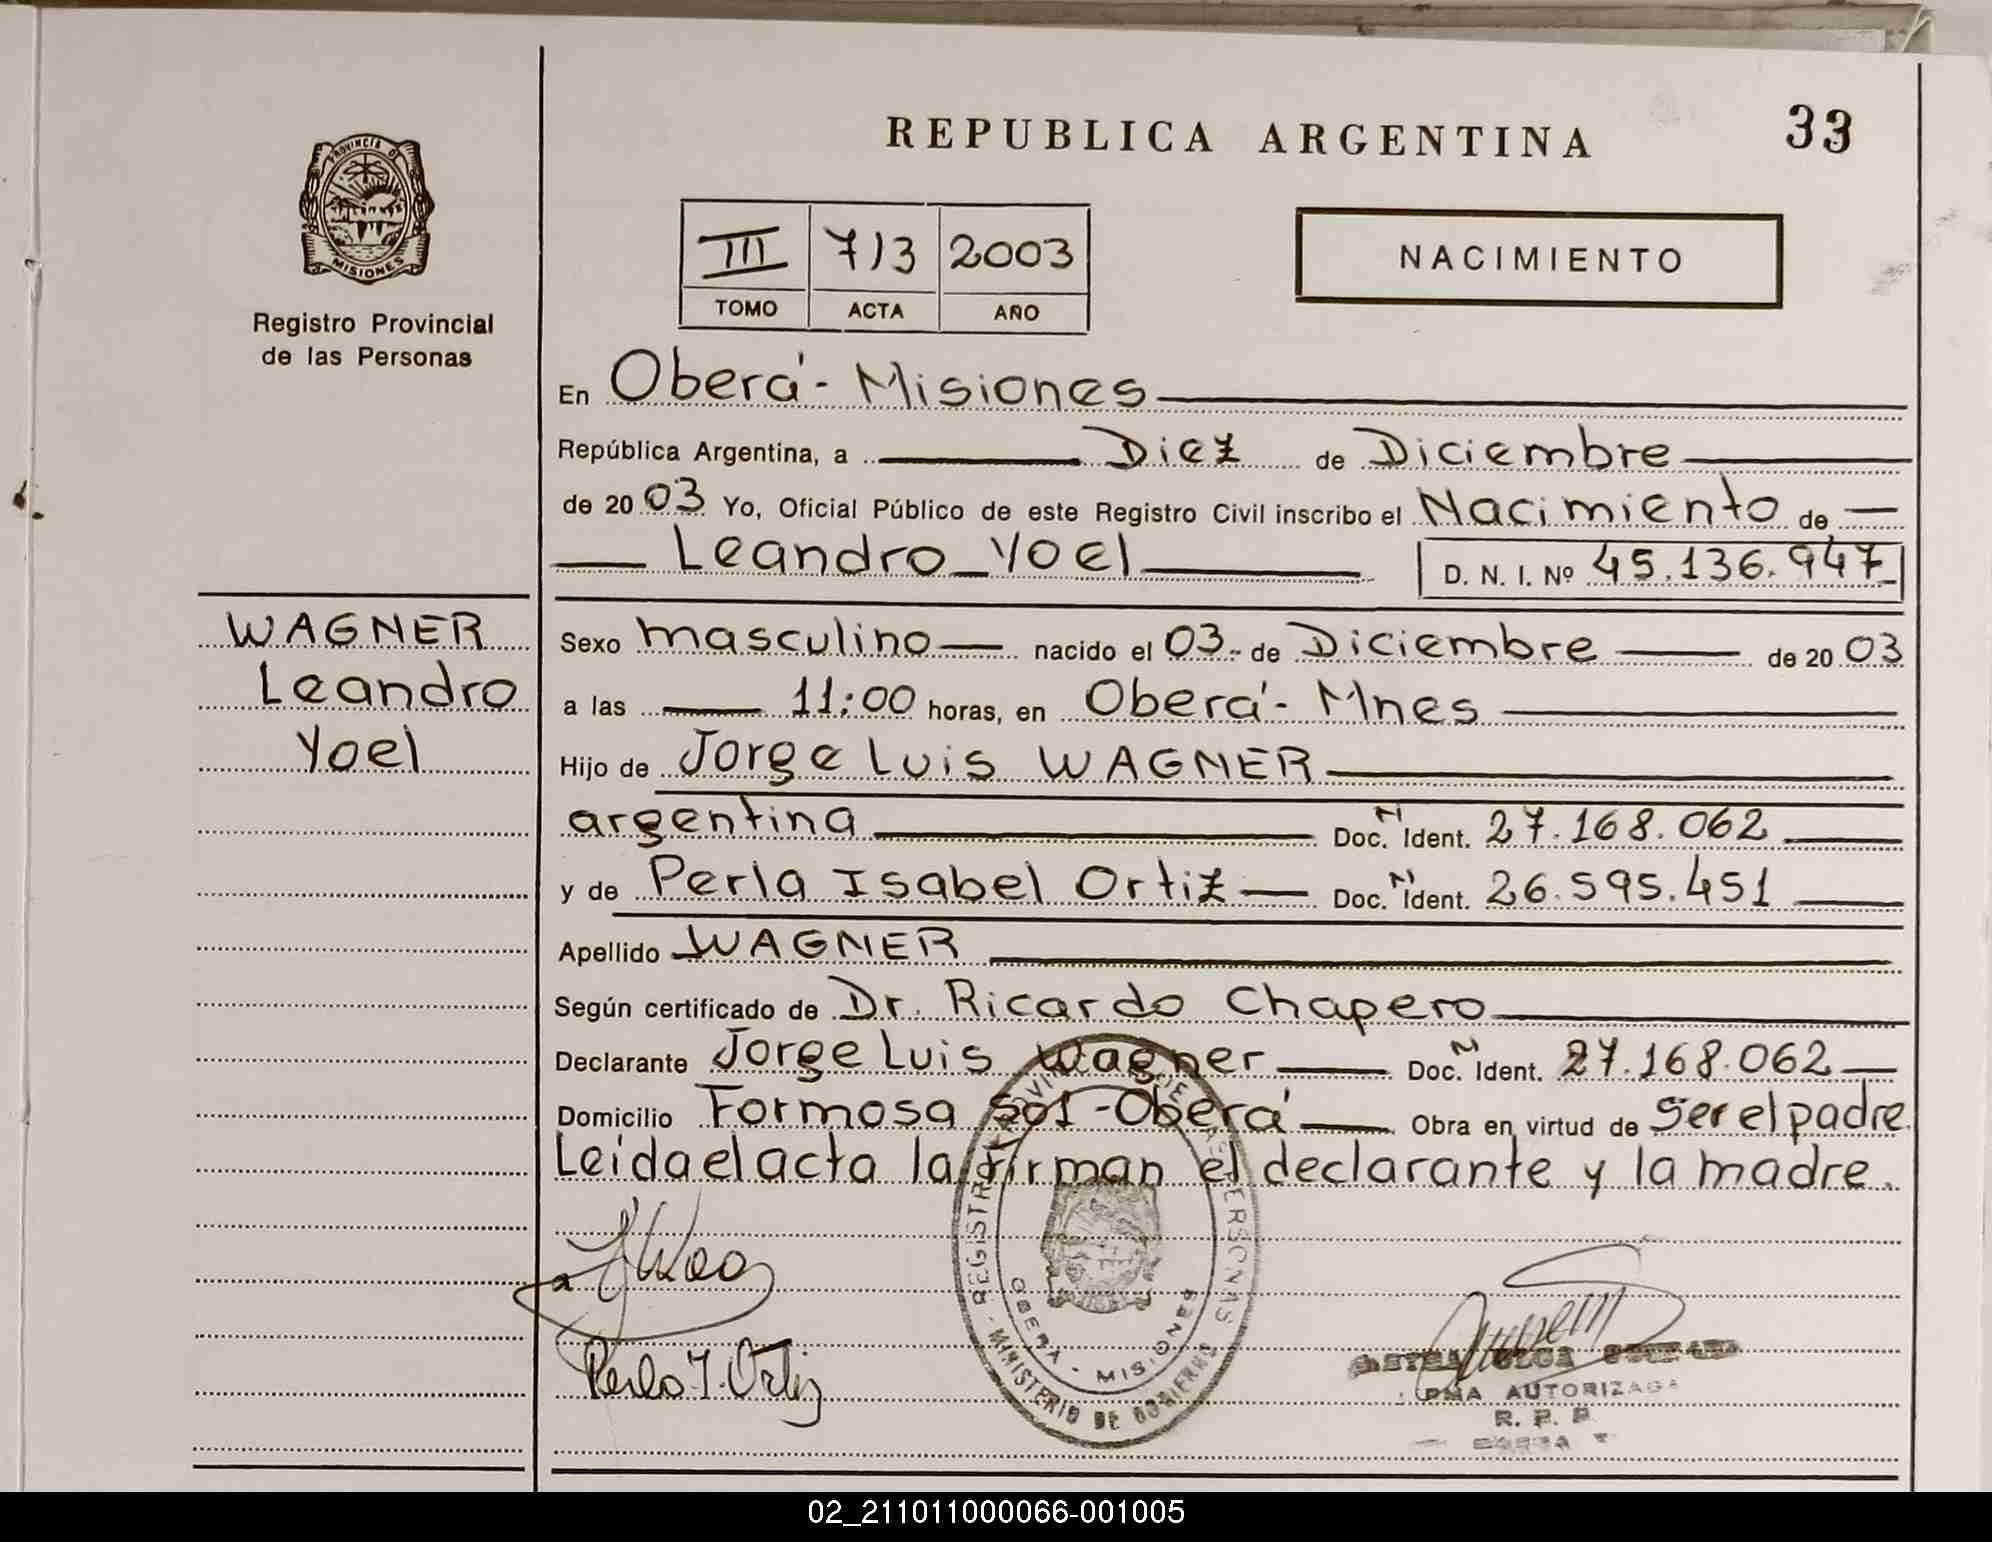 REPUBLICA ARGENTINA
33
PROVINCIA D
MISIONES
Registro Provincial
de las Personas
III 713 2003
TOMO ACTA AÑO
NACIMIENTO
En Oberá - Misiones
República Argentina, a Diez de Diciembre
de 20 03 Yo, Oficial Público de este Registro Civil inscribo el Nacimiento de
Leandro Yoel D. N. I. Nº 45.136.947
WAGNER
Leandro
Yoel
Sexo masculino nacido el 03 - de Diciembre de 20 03
a las 11:00 horas, en Oberá - Mnes
Hijo de Jorge Luis WAGNER
argentina Doc. N Ident. 27.168.062
y de Perla Isabel Ortiz Doc. N Ident. 26.595.451
Apellido WAGNER
Según certificado de Dr. Ricardo Chapero
Declarante Jorge Luis Wagner Doc. N Ident. 27.168.062
Domicilio Formosa 501 - Oberá Obra en virtud de ser el padre.
Leida el acta la firman el declarante y la madre.
a
Perla I. Ortiz
OBERÁ - MISIONES
MINISTERIO DE GOBIERNO
AUTORIZADA
R. P. P.
02_211011000066-001005